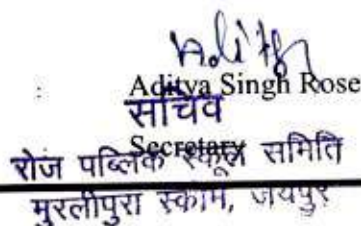 :
Aditya Singh Rose
सचिव
Secretary
रोज पब्लिक स्कूल समिति
मुरलीपुरा स्कीम, जयपुर